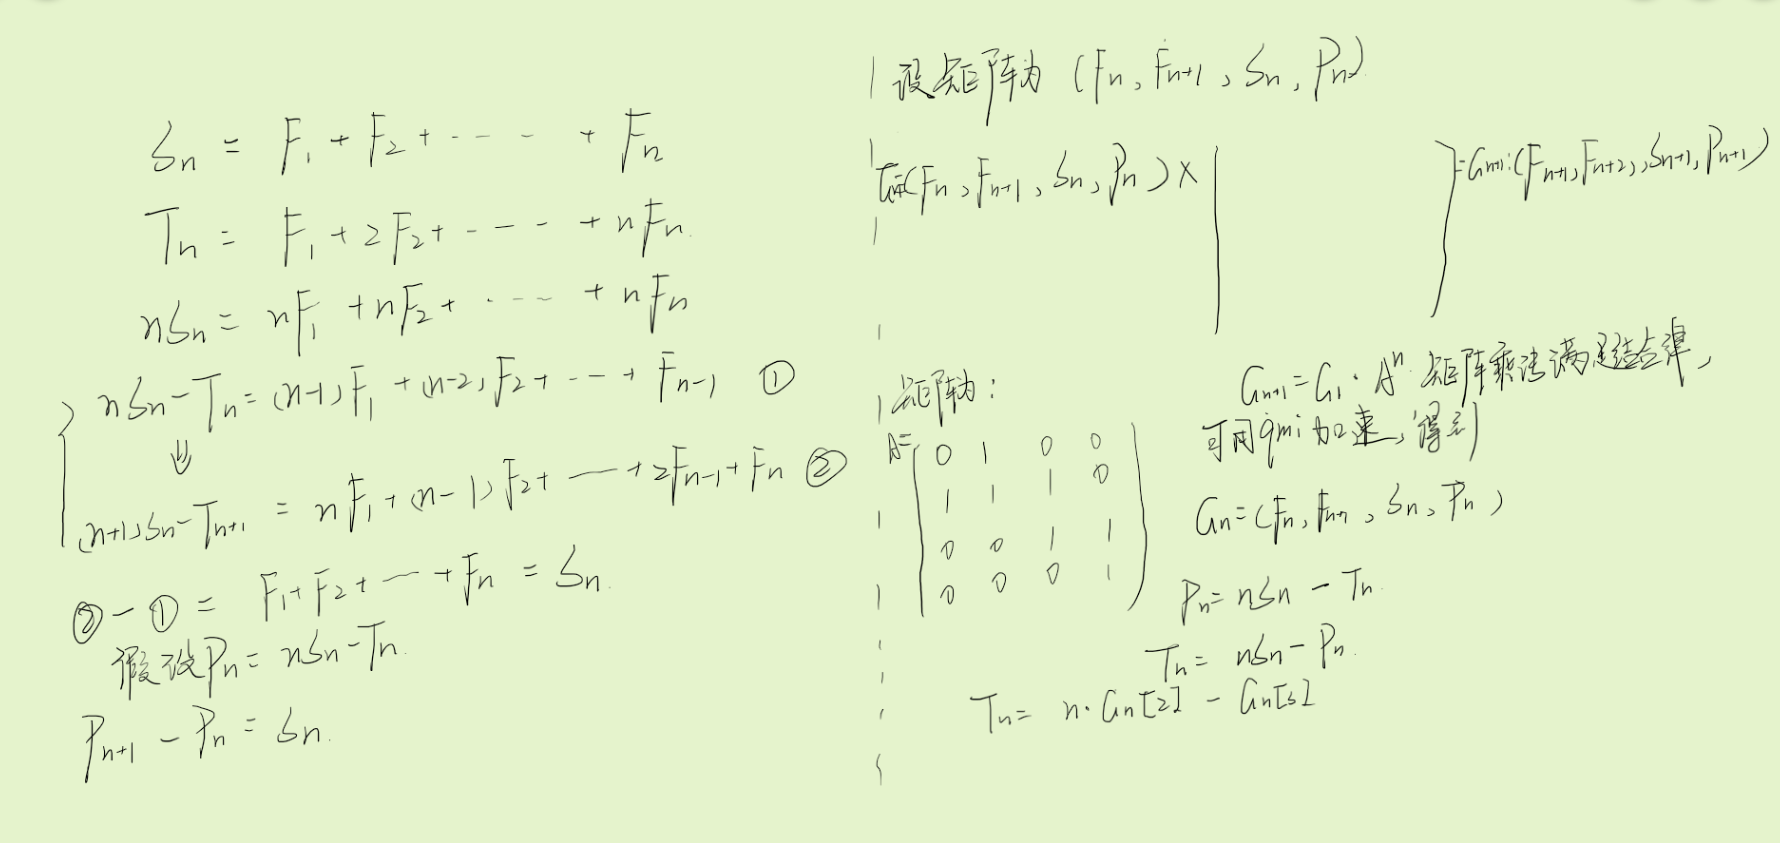 Sn = F₁ + F₂ + ······ + Fn
Tn = F₁ + 2F₂ + ······ + nFn
nSn = nF₁ + nF₂ + ······ + nFn
nSn - Tn = (n-1)F₁ + (n-2)F₂ + ··· + Fn-1 ①
⇓
(n+1)Sn - Tn+1 = nF₁ + (n-1)F₂ + ··· + 2Fn-1 + Fn ②
② - ① = F₁ + F₂ + ··· + Fn = Sn
假设Pn = nSn - Tn
Pn+1 - Pn = Sn
设矩阵为 (Fn, Fn+1, Sn, Pn)
Gn=(Fn, Fn+1, Sn, Pn) × [ ] = Gn+1:(Fn+1, Fn+2, Sn+1, Pn+1)
矩阵为:
A=
0 1 0 0
1 1 1 0
0 0 1 1
0 0 0 1
Gn+1 = G₁ · Aⁿ 矩阵乘法满足结合律,
可用qmi加速,得到
Gn = (Fn, Fn+1, Sn, Pn)
Pn = nSn - Tn
Tn = nSn - Pn
Tn = n·Gn[2] - Gn[3]